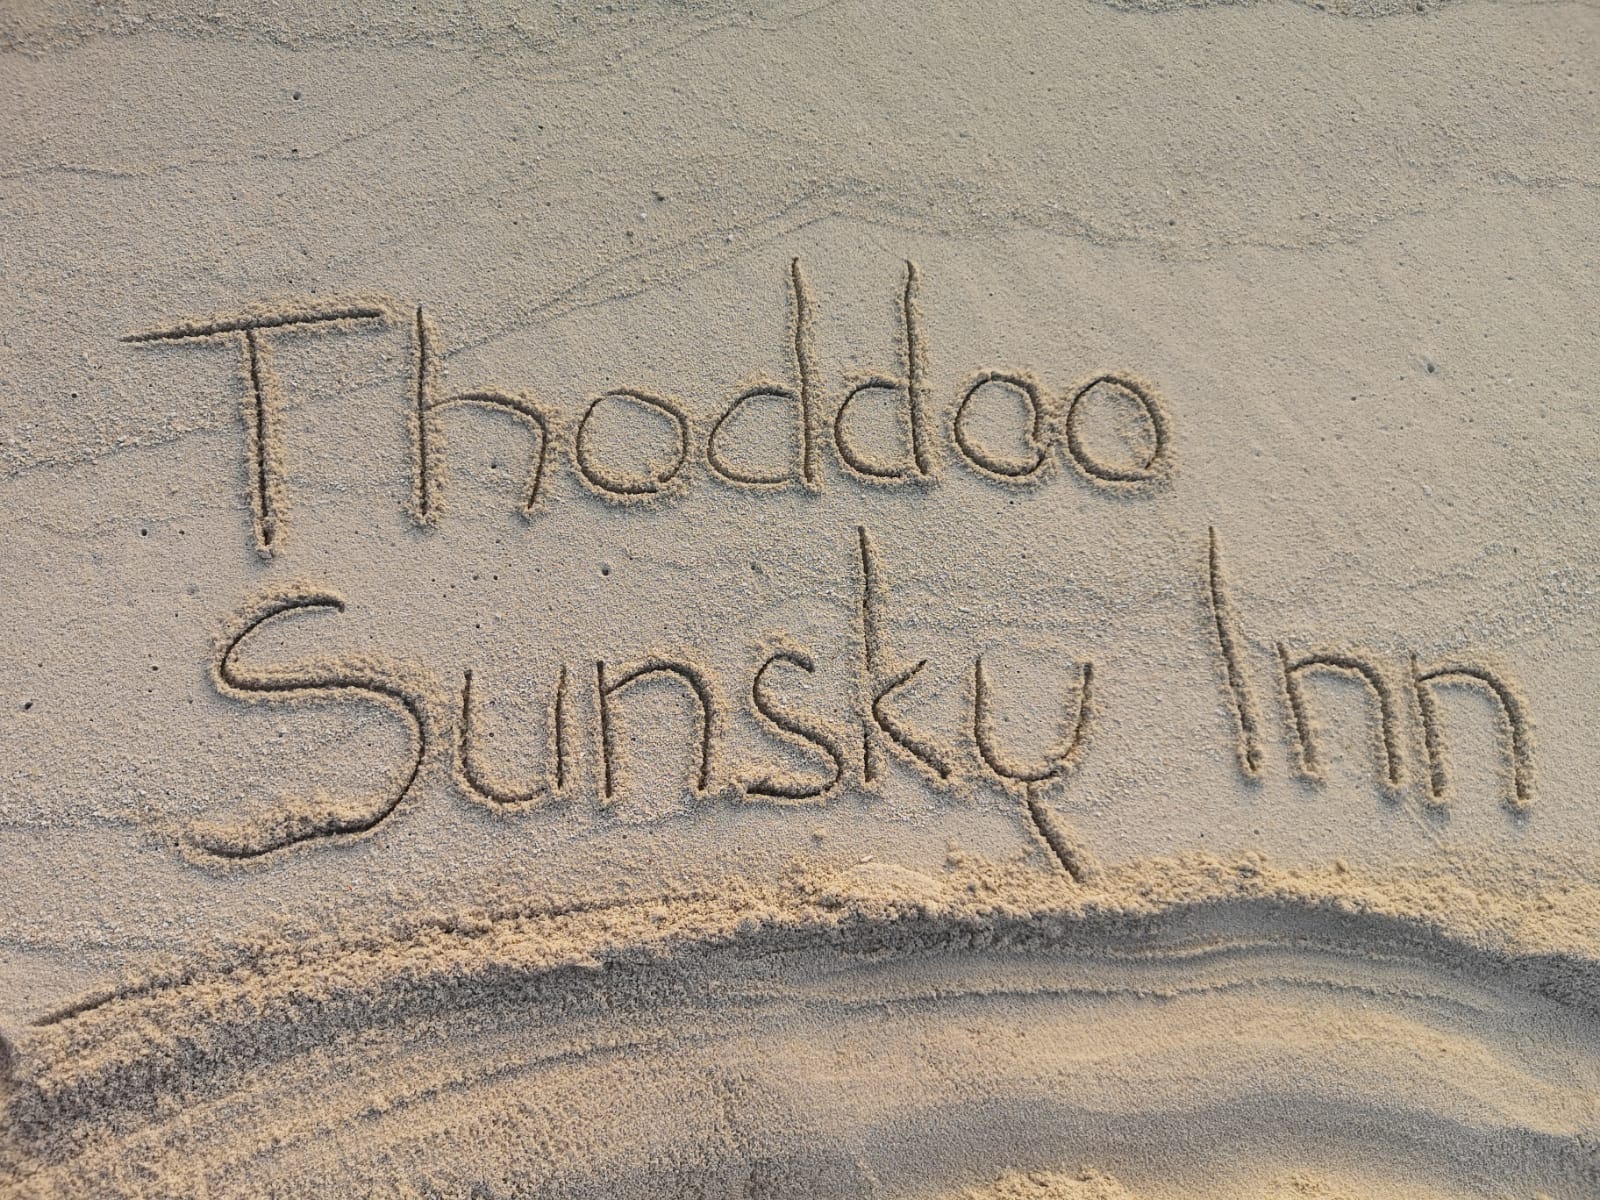 Thoddoo
Sunsky Inn